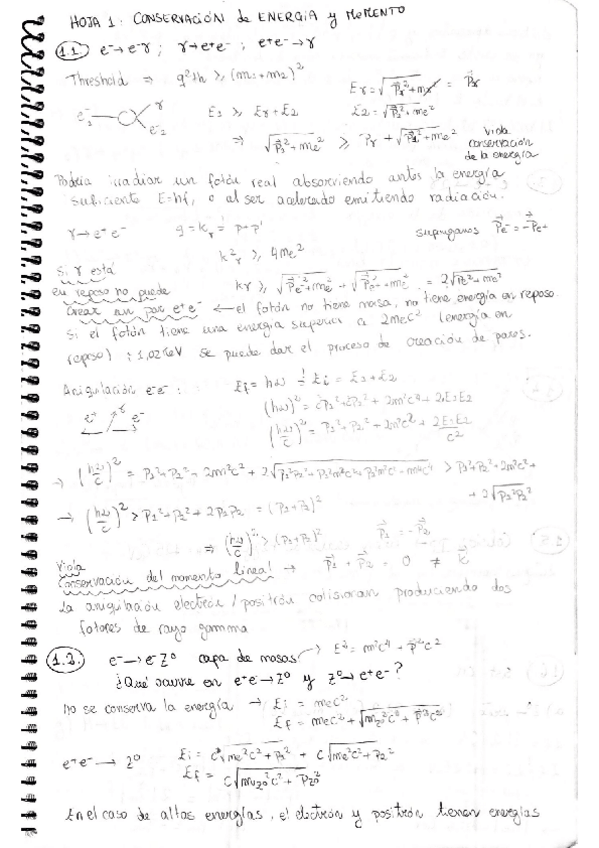 HOJA 1: CONSERVACIÓN de ENERGÍA y MOMENTO
1.1. e⁻→e⁻γ ; γ→e⁺e⁻ ; e⁺e⁻→γ
Threshold ⇒ q²th ≥ (m₁+m₂)²
Eγ = √(p⃗γ²+m²) = p⃗γ
e⁻₁ γ e⁻₂ E₁ ≥ Eγ+E₂ E₂ = √(p⃗₂²+me²)
⇒ √(p⃗₁²+me²) ≥ Pγ + √(p⃗₂²+me²) viola conservación de la energía
Podría irradiar un fotón real absorviendo antes la energía
suficiente E=hf, o al ser acelerado emitiendo radiación.
γ→e⁺e⁻ q = kγ = p+p' supongamos P⃗e⁻=-P⃗e⁺
k²γ ≥ 4me²
Si γ está
en reposo no puede kγ ≥ √(P⃗e⁻²+me²) + √(P⃗e⁺²+me²) = 2√(Pe²+me²)
crear un par e⁺e⁻ ← el fotón no tiene masa, no tiene energía en reposo.
Si el fotón tiene una energía superior a 2mec² (energía en
reposo) : 1,02 MeV se puede dar el proceso de creación de pares.
Aniquilación e⁺e⁻ : Ef = hω = Ei = E₁+E₂
e⁺ γ e⁻
→ (hω/c)² > P₁²+P₂²+2P₁P₂ = (P₁+P₂)²
⇒ (hω/c)² > (P₁+P₂)² P⃗₁ = -P⃗₂
Viola
conservación del momento lineal → P⃗₁ + P⃗₂ = 0 ≠ k⃗
la aniquilación electrón/positrón colisionan produciendo dos
fotones de rayo gamma
1.2. e⁻→e⁻Z⁰ capa de masas → E² = m²c⁴ + p²c²
¿Qué ocurre en e⁺e⁻→Z⁰ y Z⁰→e⁺e⁻?
No se conserva la energía → Ei = mec²
Ef = mec² + √(mz⁰²c⁴ + p²c²)
e⁺e⁻→Z⁰ Ei = c√(me²c²+p₁²) + c√(me²c²+p₂²)
Ef = c√(mz⁰²c²+Pz⁰²)
En el caso de altas energías, el electrón y positrón tienen energías